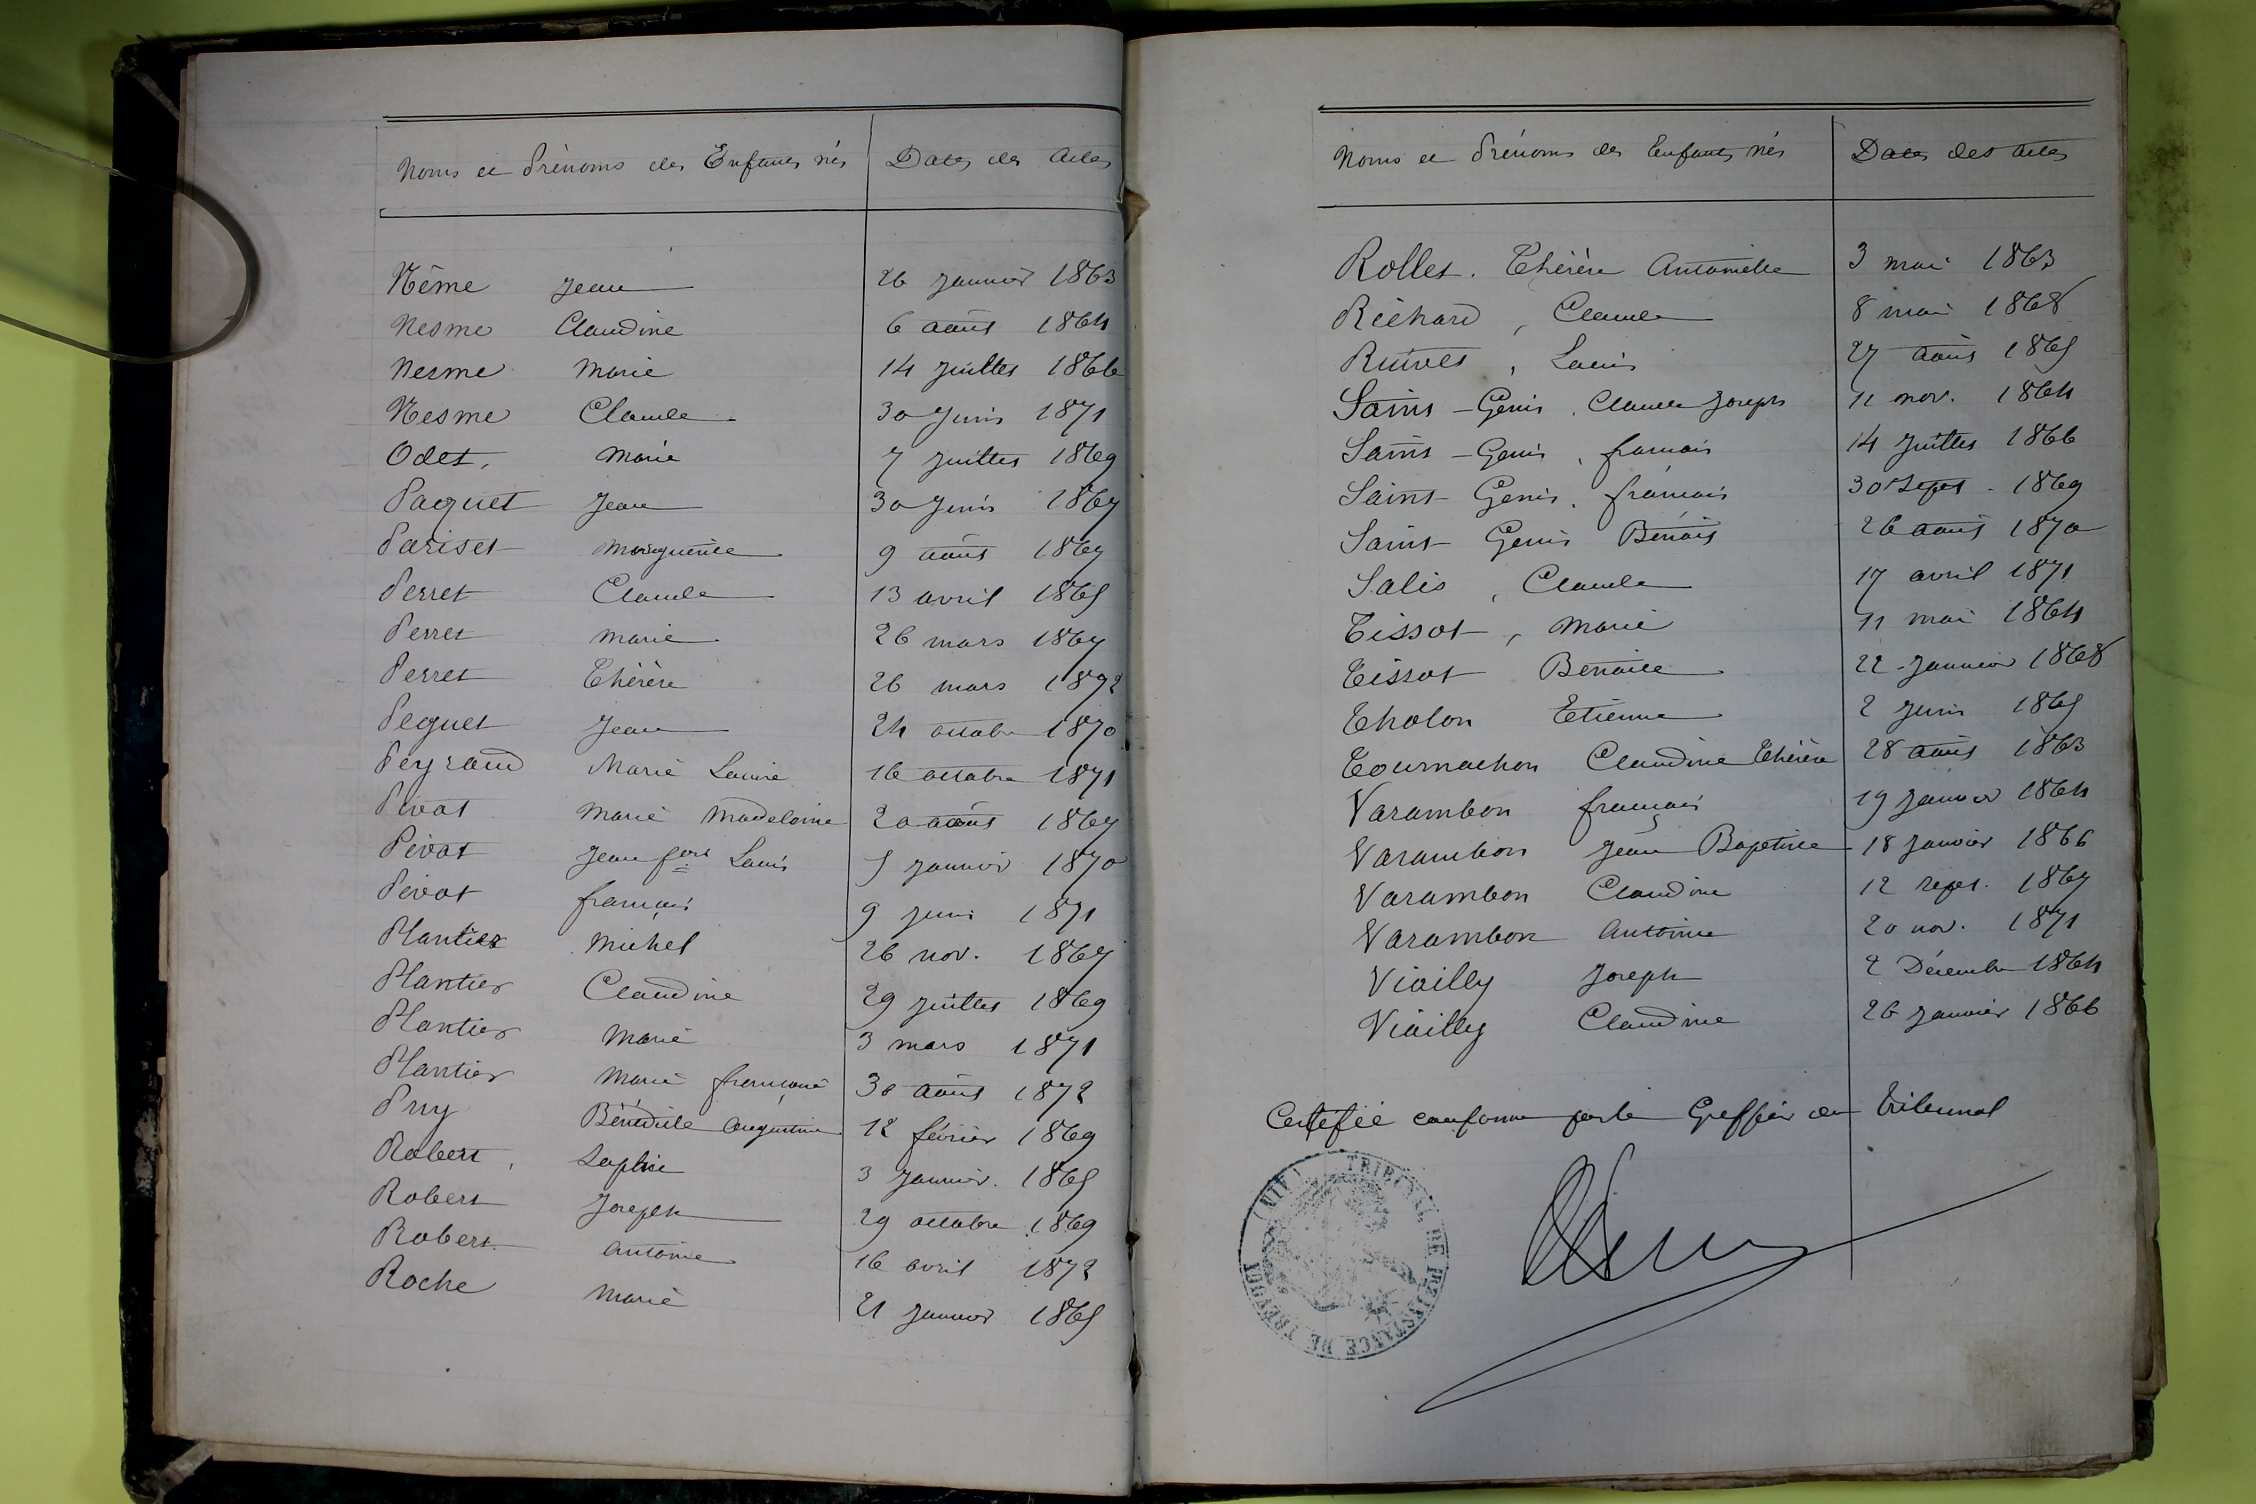 Noms et Prénoms des Enfants nés Dates des actes
Nême Jean 26 Janvier 1863
Nesme Claudine 6 août 1864
Nesme Marie 14 Juillet 1866
Nesme Claude 30 Juin 1871
Odet, Marie 7 Juillet 1869
Paquet Jean 30 Juin 1867
Pariset Marguerite 9 août 1867
Perret Claude 13 avril 1865
Perret Marie 26 mars 1867
Perret Thérèse 26 mars 1872
Peguet Jean 24 octobre 1870
Peyraud Marie Louise 16 octobre 1871
Pivot Marie Madeleine 20 août 1867
Pivot Jean fçois Louis 5 Janvier 1870
Pivot françois 9 Juin 1871
Plantier Michel 26 nov. 1867
Plantier Claudine 29 Juillet 1869
Plantier Marie 3 mars 1871
Plantier Marie françoise 30 août 1872
Puy Bénédicte Augustine 12 février 1869
Robert, Sophie 3 Janvier. 1865
Robert Joseph 29 octobre 1869
Robert Antoine 16 avril 1872
Roche Marie 21 Janvier 1865
Noms et Prénoms des Enfants nés Dates des actes
Rollet. Thérèse Antoinette 3 mai 1863
Richard, Claude 8 mai 1868
Ruivet, Louis 27 août 1865
Saint-Genis, Claude Joseph 11 nov. 1864
Saint-Genis, françois 14 Juillet 1866
Saint-Genis, françois 30 Sept. 1869
Saint Genis Benoît 26 août 1870
Salis, Claude 17 avril 1871
Tissot, Marie 11 mai 1864
Tissot Benoite 22 Janvier 1868
Tholon Etienne 2 Juin 1865
Tournachon Claudine Thérèse 28 août 1863
Varambon françois 19 Janvier 1864
Varambon Jean Baptiste 18 Janvier 1866
Varambon Claudine 12 sept. 1867
Varambon Antoine 20 nov. 1871
Viailly Joseph 2 Décembre 1864
Viailly Claudine 26 Janvier 1866
Certifié conforme par le Greffier du Tribunal
TRIBUNAL DE PRE INSTANCE DE TREVOUX (AIN)